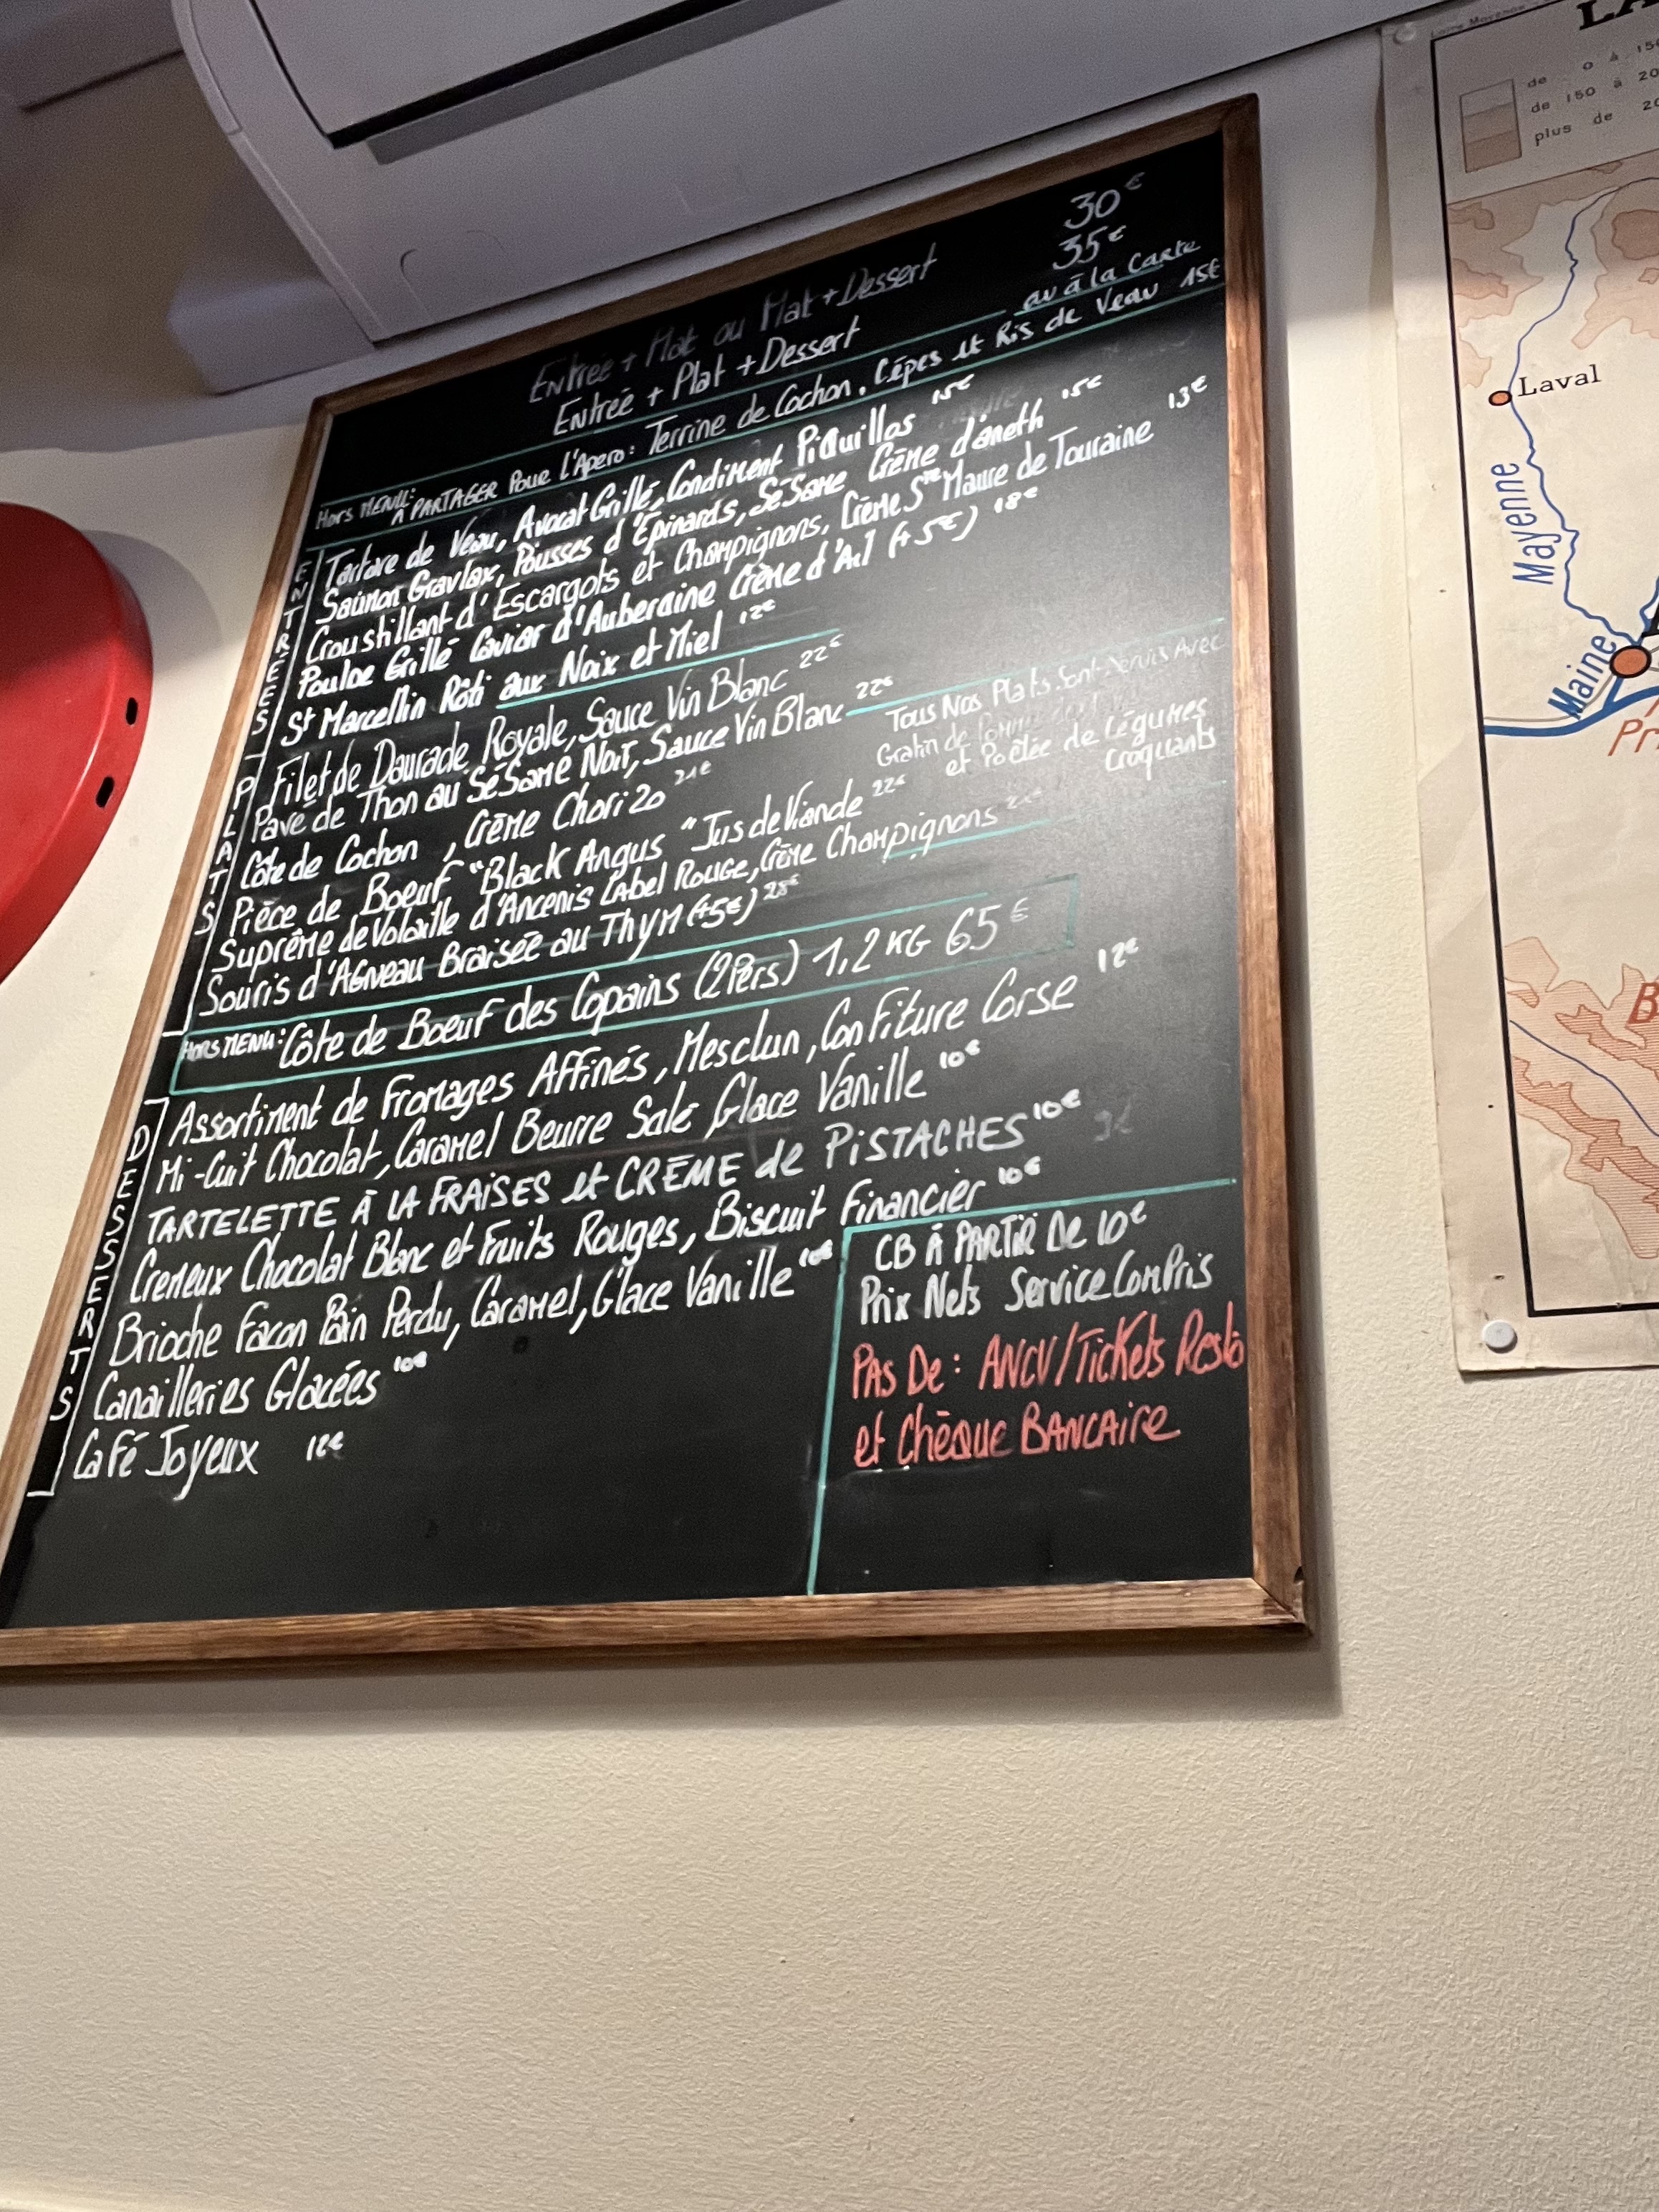 Entrée + Plat ou Plat + Dessert 30€
Entrée + Plat + Dessert 35€
ou à la Carte
Hors MENU:
A PARTAGER Pour L'Apero: Terrine de Cochon, Cèpes et Ris de Veau 15€
ENTREES
Tartare de Veau, Avocat Grillé, Condiment PiQuillos 15€
Saumon Gravlax, Pousses d'Épinards, SéSame Crème d'aneth 15€
Croustillant d'Escargots et Champignons, Crème Ste Maure de Touraine 13€
Poulpe Grillé Caviar d'Aubergine Crème d'Ail (+5€) 18€
St Marcellin Rôti aux Noix et Miel 12€
PLATS
Filet de Daurade Royale, Sauce Vin Blanc 22€
Pavé de Thon au SéSame Noir, Sauce Vin Blanc 22€
Côte de Cochon, Crème Chorizo 21€
Pièce de Boeuf "Black Angus" Jus de Viande 22€
Suprême de Volaille d'Ancenis Label Rouge, Crème Champignons
Souris d'Agneau Braisée au Thym (+5€) 28€
Tous Nos Plats Sont Servis Avec
Gratin de
et Poêlée de Légumes
Croquants
HORS MENU: Côte de Boeuf des Copains (2Pers) 1,2 KG 65€
DESSERTS
Assortiment de Fromages Affinés, Mesclun, Confiture Corse 12€
Mi-Cuit Chocolat, Caramel Beurre Salé Glace Vanille 10€
TARTELETTE À LA FRAISES et CRÈME de PISTACHES 10€
9€
Cremeux Chocolat Blanc et Fruits Rouges, Biscuit Financier 10€
Brioche Facon Pain Perdu, Caramel, Glace Vanille 10€
Canailleries Glacées 10€
Café Joyeux 12€
CB À PARTIR DE 10€
Prix Nets Service Compris
PAS De: ANCV/Tickets Resto
et Chèque BANCAIRE
de 0 à 15
de 150 à 20
plus de 20
Laval
Mayenne
Maine